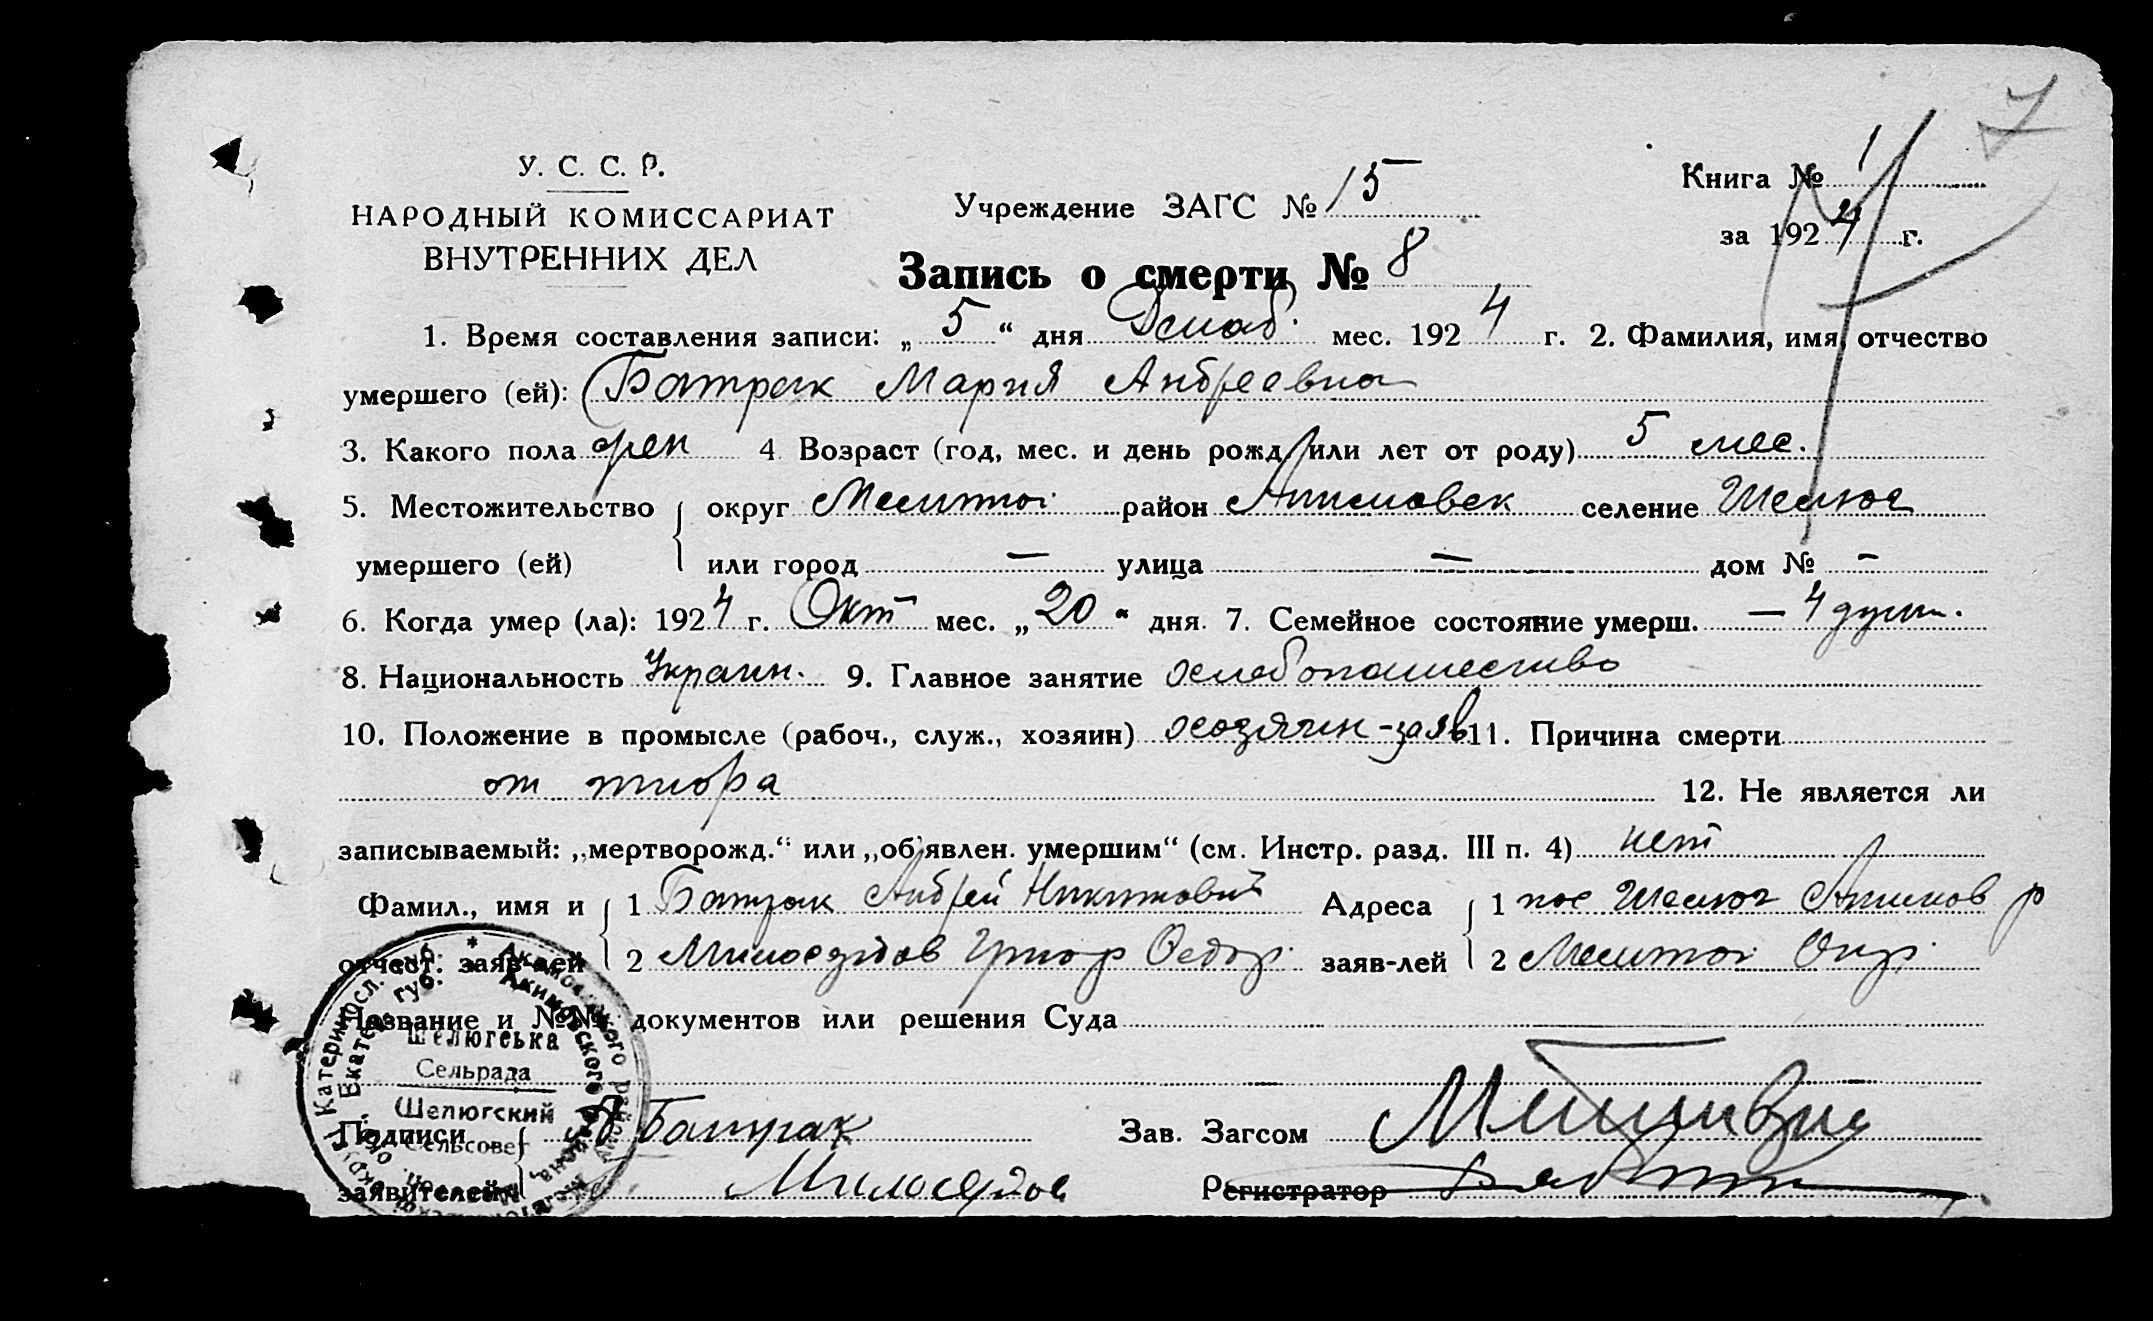 7
У. С. С. Р.
НАРОДНЫЙ КОМИССАРИАТ
ВНУТРЕННИХ ДЕЛ
Учреждение ЗАГС № 15
Книга № 1
за 1924 г.
Запись о смерти № 8
1. Время составления записи: „5“ дня Декаб. мес. 1924 г. 2. Фамилия, имя, отчество
умершего (ей): Батрак Мария Андреевна
3. Какого пола жен 4. Возраст (год, мес. и день рожд. или лет от роду) 5 мес.
5. Местожительство округ Мелитоп район Акимовск селение Шелюг
умершего (ей) или город — улица — дом № -
6. Когда умер (ла): 1924 г. Окт мес. „20“ дня. 7. Семейное состояние умерш. — 4 душ.
8. Национальность Украин. 9. Главное занятие хлебопашество
10. Положение в промысле (рабоч., служ., хозяин) хозяин-заяв 11. Причина смерти
от
12. Не является ли
записываемый: „мертворожд.“ или „об'явлен. умершим“ (см. Инстр. разд. III п. 4) нет
Фамил., имя и 1 Батрак Андрей Никитович Адреса 1 пос Шелюг Акимов р
отчест. заяв-лей 2 Милосердов Григор Федор. заяв-лей 2 Мелитоп Окр.
Название и №№ документов или решения Суда
Шелюгська
Сельрада
Шелюгский
Сельсовет
Подписи Батрак Зав. Загсом
заявителей Милосердов Регистратор